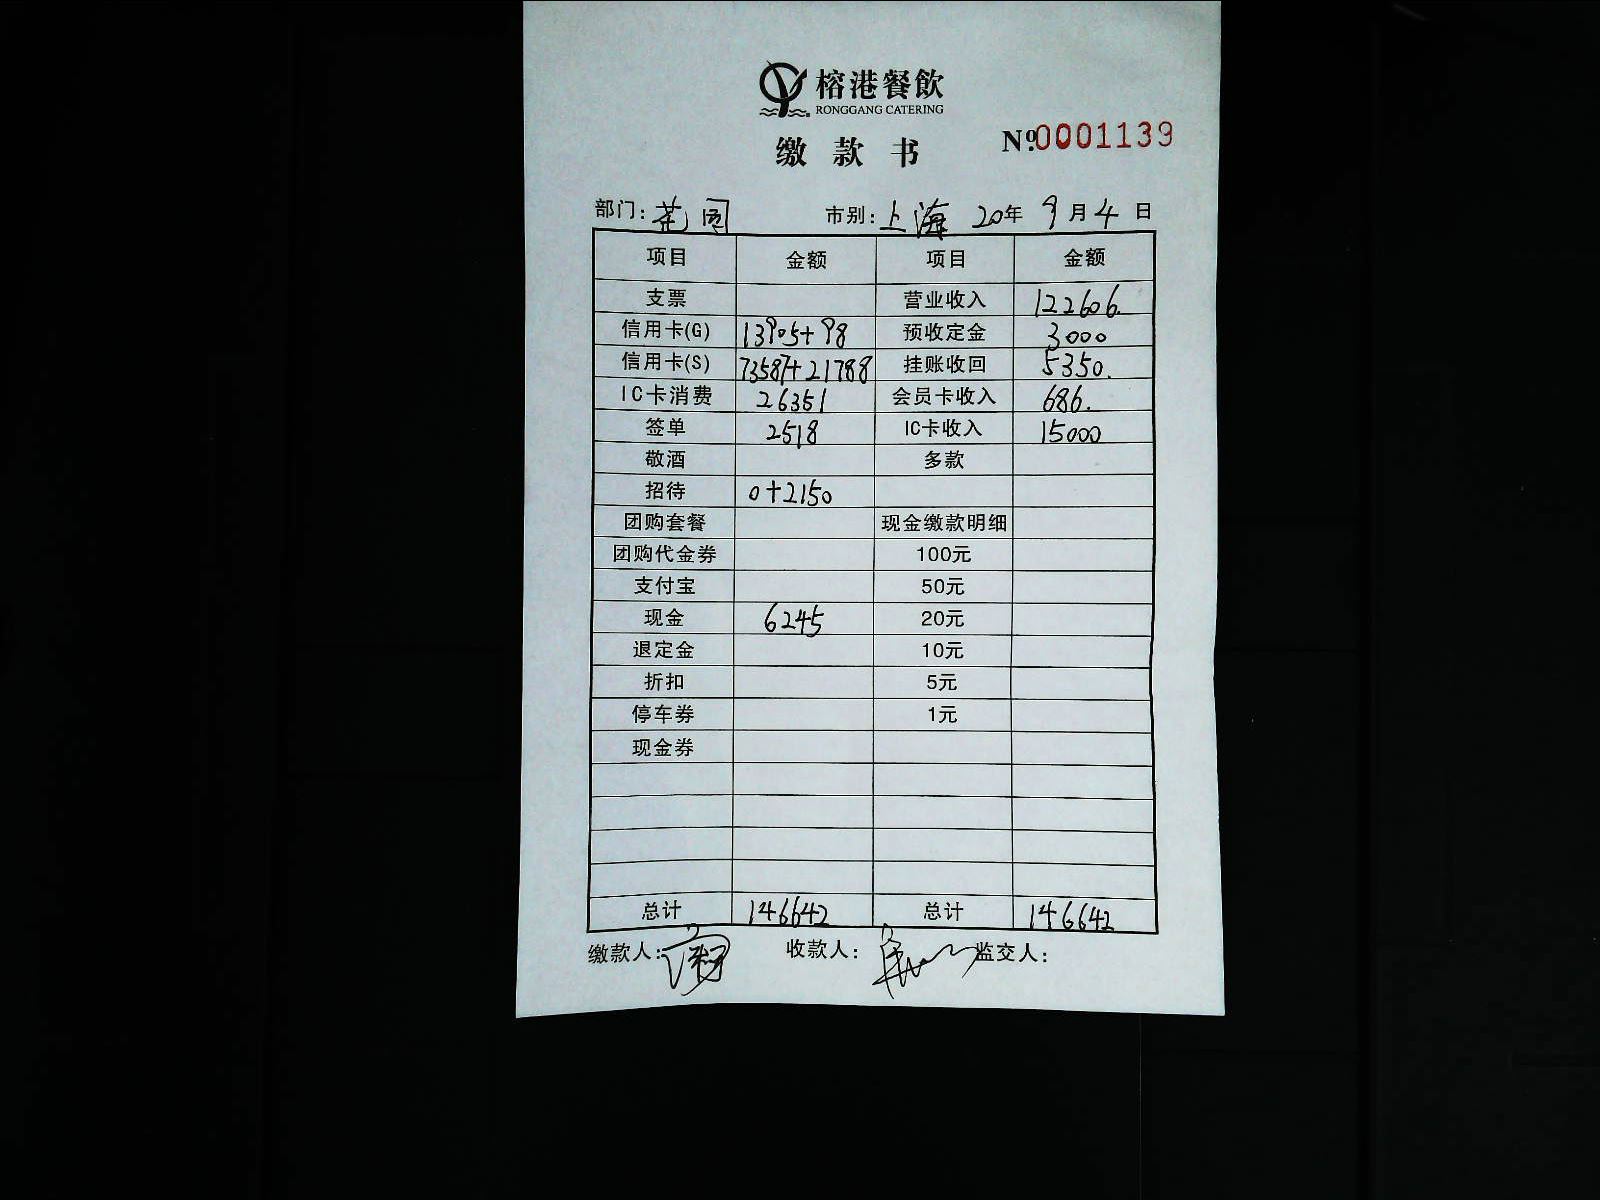 榕港餐飲
RONGGANG CATERING
缴款书
Nº0001139
部门：花园 市别：上海 20年 9月 4日
项目 金额 项目 金额
支票 营业收入 122606.
信用卡(G) 13905+98 预收定金 3000
信用卡(S) 73587+21788 挂账收回 5350.
IC卡消费 26351 会员卡收入 686.
签单 2518 IC卡收入 15000
敬酒 多款
招待 0+2150
团购套餐 现金缴款明细
团购代金券 100元
支付宝 50元
现金 6245 20元
退定金 10元
折扣 5元
停车券 1元
现金券
总计 146642 总计 146642
缴款人： 收款人： 监交人：